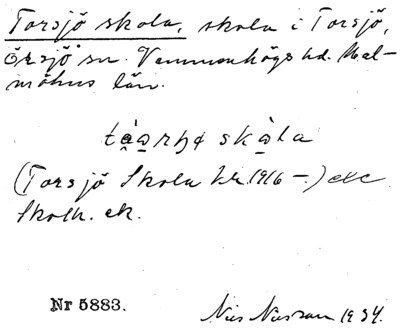 Torsjö skola, skola i Torsjö,
Örsjö sn. Vemmenhögs hd. Mal-
möhus län.
skola
(Torsjö Skola 1916 –.) etc
Skolh. ek.
Nr 5883.
Nils 1934.